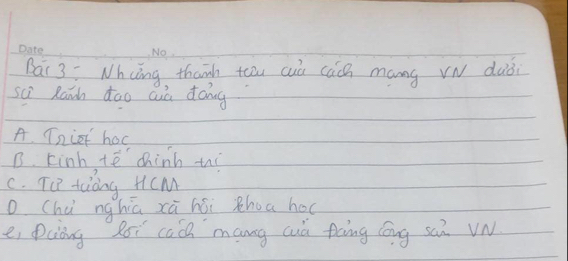 Date No.
Bài 3: Những thành tựu của cách mạng VN dưới
sự lãnh đạo của đảng
A. Triết học
B. Kinh tế chính trị
C. Tư tưởng HCM
D. Chủ nghĩa xã hội khoa học
e, Đường lối cách mạng của Đảng Cộng sản VN